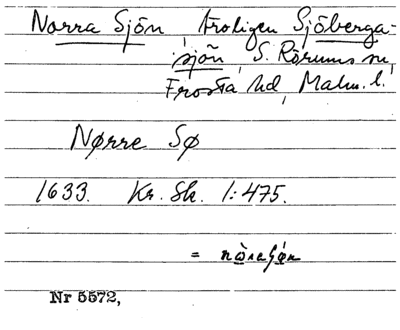 Norra Sjön, troligen Sjöberga-
sjön, S. Rörums sn,
Frosta hd, Malm. l.
Nørre Sø
1633. Kr. Sk. 1:475.
=
Nr 5572,